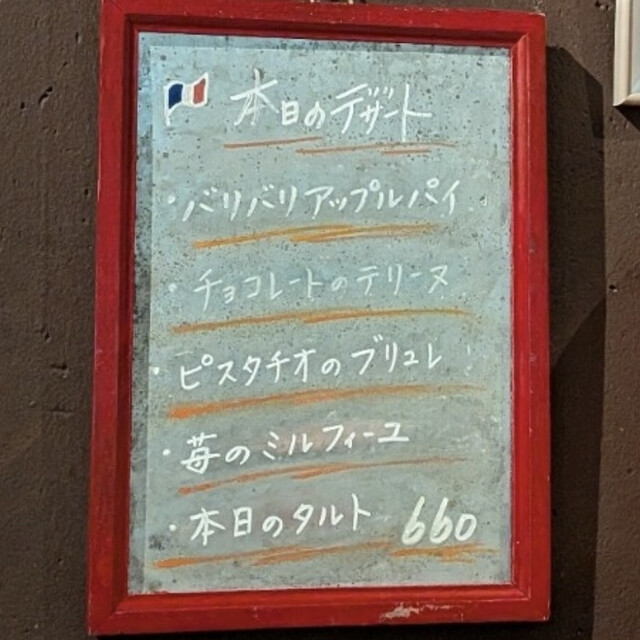 本日のデザート
・バリバリアップルパイ
・チョコレートのテリーヌ
・ピスタチオのブリュレ
・苺のミルフィーユ
・本日のタルト 660